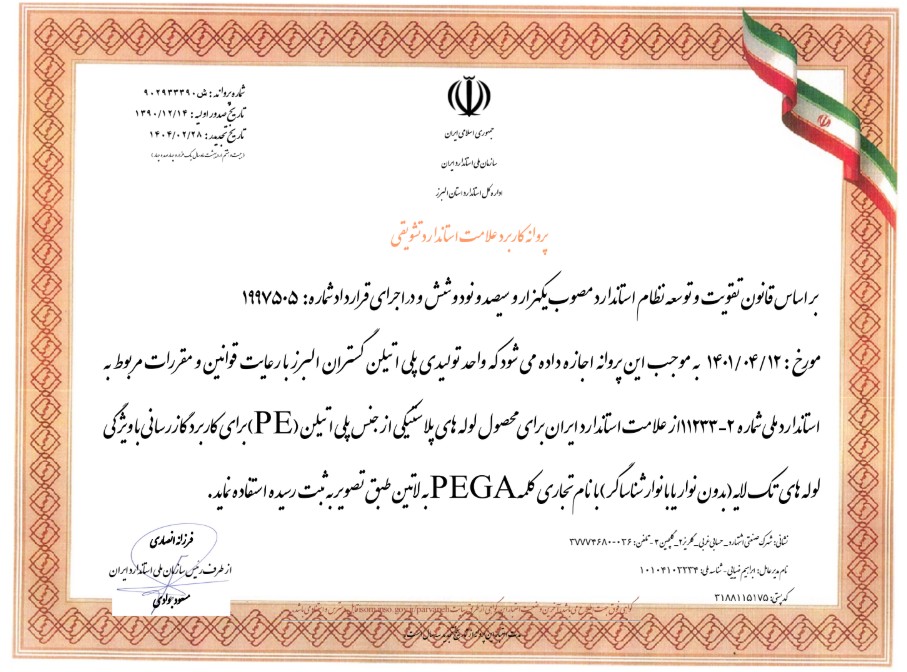 شماره پروانه: ش ۹۰۲۹۳۳۳۹۰
تاریخ صدور اولیه: ۱۳۹۰/۱۲/۱۴
تاریخ تجدید: ۱۴۰۴/۰۲/۲۸
جمهوری اسلامی ایران
سازمان ملی استاندارد ایران
اداره کل استاندارد استان البرز
پروانه کاربرد علامت استاندارد تشویقی
بر اساس قانون تقویت و توسعه نظام استاندارد مصوب یکهزار و سیصد و نود و شش و در اجرای قرارداد شماره: ۱۹۹۷۵۰۵
مورخ: ۱۴۰۱/۰۴/۱۲ به موجب این پروانه اجازه داده می شود که واحد تولیدی پلی اتیلن گستران البرز با رعایت قوانین و مقررات مربوط به
استاندارد ملی شماره ۲-۱۱۲۳۳ از علامت استاندارد ایران برای محصول لوله های پلاستیکی از جنس پلی اتیلن (PE) برای کاربرد گازرسانی با ویژگی
لوله های تک لایه (بدون نوار یا با نوار شناساگر) با نام تجاری کلمه PEGA به لاتین طبق تصویر به ثبت رسیده استفاده نماید.
نشانی: شهرک صنعتی اشتهارد_ حسابی غربی_ گلریز۲_ گلچین۲_ تلفن: ۰۲۶-۳۷۷۷۴۶۸۰
نام مدیرعامل: ابراهیم ضیایی- شناسه ملی: ۱۰۱۰۴۱۰۲۲۳۴
کدپستی: ۳۱۸۸۱۱۵۱۷۵
فرزانه انصاری
از طرف رئیس سازمان ملی استاندارد ایران
مسعود بوادی